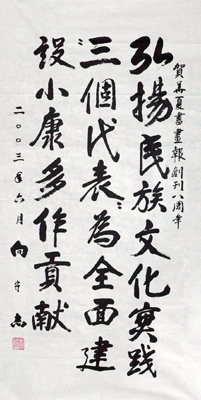 賀華夏書畫報創刊八周年
弘揚民族文化實踐
三個代表為全面建
設小康多作貢献
二〇〇三年六月 向守志